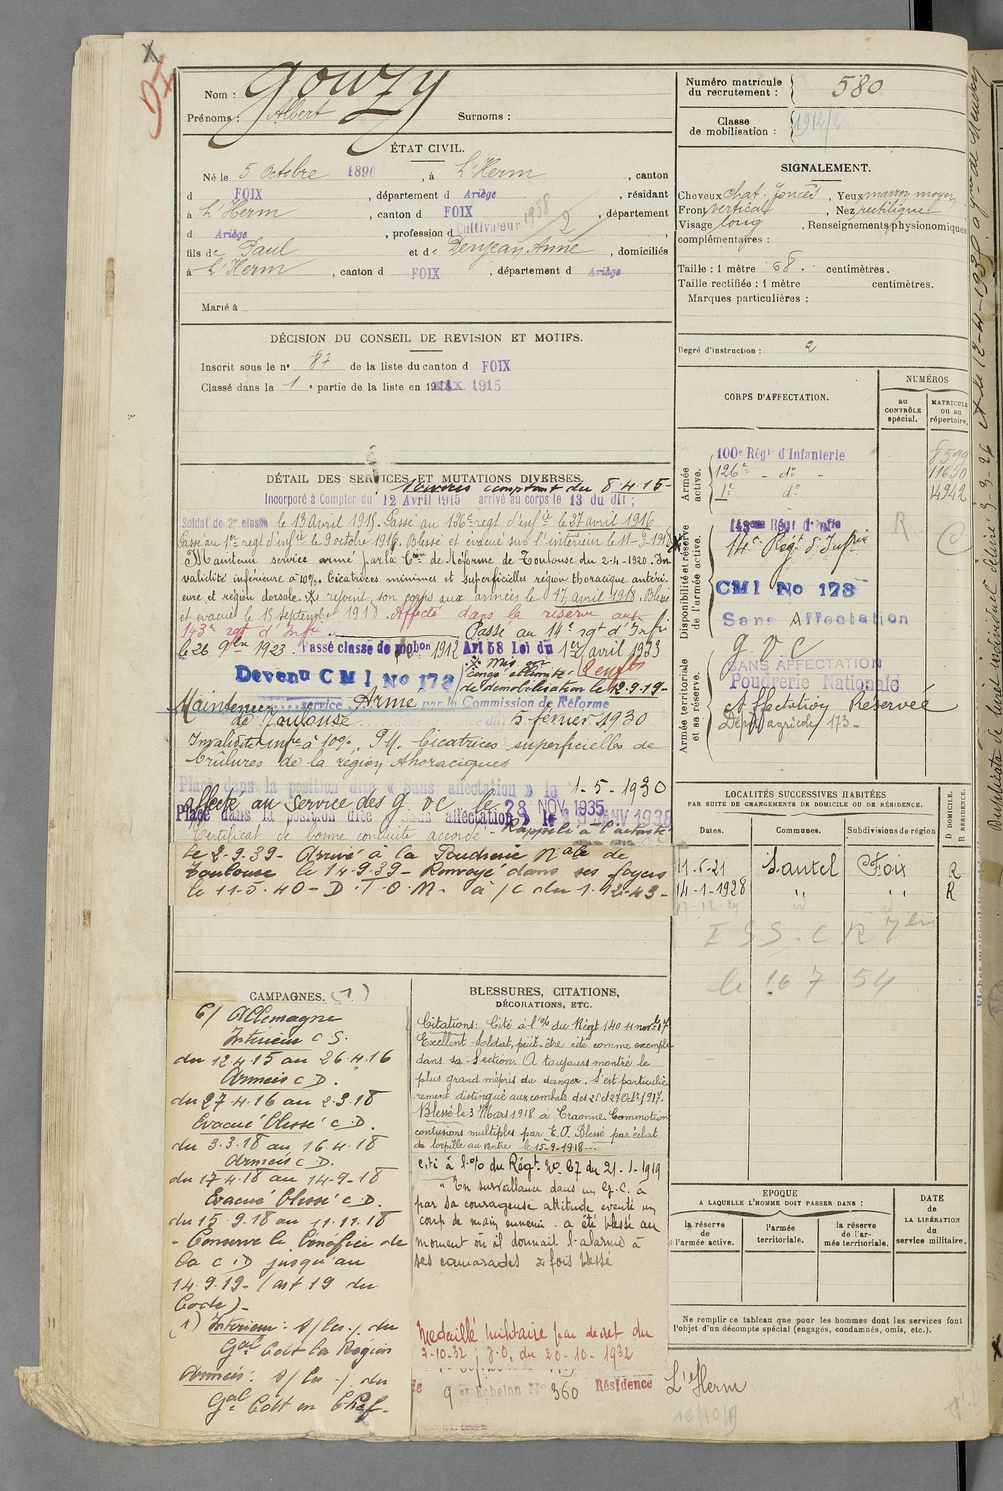 Nom : Gouzy
Prénoms : Albert Surnoms :
Numéro matricule du recrutement : 580
Classe de mobilisation : 1912/2
ÉTAT CIVIL.
Né le 5 Octobre 1896, à L'Herm, canton
d FOIX, département d Ariège, résidant
à L'Herm, canton d FOIX, département
d Ariège, profession d Cultivateur
fils de Paul et de Denjean Anne, domiciliés
à L'Herm, canton d FOIX, département d Ariège
Marié à
SIGNALEMENT.
Cheveux chat. foncé, Yeux marron moyen
Front vertical, Nez rectiligne
Visage long, Renseignements physionomiques
complémentaires :
Taille : 1 mètre 68. centimètres.
Taille rectifiée : 1 mètre centimètres.
Marques particulières :
Degré d'instruction : 2
DÉCISION DU CONSEIL DE REVISION ET MOTIFS.
Inscrit sous le n° 87 de la liste du canton d FOIX
Classé dans la 1e partie de la liste en 1915
DÉTAIL DES SERVICES ET MUTATIONS DIVERSES.
Services comptant du 8-4-15-
Incorporé à Compter du 12 Avril 1915 arrivé au corps le 13 du dit ;
Soldat de 2e classe le 13 Avril 1915. Passé au 126e regt d'infie le 27 avril 1916
Passé au 1er regt d'infie le 9 octobre 1916. Blessé et évacué sur l'intérieur le 11-3-1918
Maintenu service armé par la Con de Réforme de Toulouse du 2-4-1920. In-
validité inférieure à 10%. Cicatrices minimes et superficielles région thoracique antéri-
eure et région dorsale. X rejoint son corps aux armées le 17 avril 1918. Blessé
et évacué le 15 septembre 1918. Affecté dans la réserve au
143e rgt d'Infie Passé au 14e rgt d'Infie
le 26 9bre 1923. Passé classe de mobon 1912 Art 58 Loi du 1er avril 1923
X Mis en
congé illimité
de démobilisation le 12-9-19-
Devenu CMI No 173
Maintenu service Armé par la Commission de Réforme
de Toulouse du 5 février 1930
Invalidité infre à 10%. P.M. Cicatrices superficielles de
brûlures de la région thoracique
Placé dans la position dite « Sans affectation » le 1-5-1930
affecté au service des G V C le 28 NOV 1935
Placé dans la position dite « Sans affectation » le JANV 1938
Certificat de bonne conduite accordé - Rappelé à l'activité
le 2-9-39- Arrivé à la Poudrerie Nale de
Toulouse le 14-9-39- Renvoyé dans ses foyers
le 11-5-40- D.T.O.M. à /c du 1-12-43-
CORPS D'AFFECTATION.
NUMÉROS
au CONTRÔLE spécial.
MATRICULE ou au répertoire.
Armée active.
100e Régt d'Infanterie 8599
126e - do - 11650
1er do 14942
Disponibilité et réserve de l'armée active.
143eme Régt d'Infie R
14e Régt d'Infrie
CMI No 173
Sans Affectation
Armée territoriale et sa réserve.
G.V.C
SANS AFFECTATION
Poudrerie Nationale
Affectation Réservée
Dépôt agricole 173-
LOCALITÉS SUCCESSIVES HABITÉES
PAR SUITE DE CHANGEMENTS DE DOMICILE OU DE RÉSIDENCE.
Dates. Communes. Subdivisions de région D DOMICILE. R RÉSIDENCE.
11-6-21 Sautel Foix R
14-1-1928 " " R
le 16 7 54
CAMPAGNES. (1)
C/ Allemagne
Intérieur C S.
du 12.4.15 au 26.4.16
Armées C D.
du 27.4.16 au 2.3.18
Evacué blessé C.D.
du 3.3.18 au 16.4.18
Armées C D.
du 17.4.18 au 14-9-18
Evacué blessé C D.
du 15.9.18 au 11.11.18
- Conserve le bénéfice de
la C.D jusqu'au
14.9.19- (art 19 du
Code)-
(1) Intérieur :
Gal Cdt la Région
Armées :
Gal Cdt en Chef-
BLESSURES, CITATIONS,
DÉCORATIONS, ETC.
Citations: Cité à l'O/ du Régt 140 11 novbre 17
Excellent soldat, peut-être cité comme exemple
dans sa section. A toujours montré le
plus grand mépris du danger. S'est particuliè-
rement distingué aux combats des 20 et 27 Octo. 1917.
Blessé le 3 Mars 1918 à Craonne. Commotion
contusions multiples par E.O. Blessé par éclat
de torpille au ventre le 15-9-1918-
Cité à l'O/ du Régt No 67 du 21-1-1919
" En surveillance dans un G.C. a
par sa courageuse attitude éventé un
coup de main ennemi. a été blessé au
moment où il donnait l'alarme à
ses camarades 2 fois blessé
Médaillé Militaire par décret du
J.O. du 20-10-1932
9 er Echelon No 360 Résidence L'Herm
EPOQUE
A LAQUELLE L'HOMME DOIT PASSER DANS :
la réserve de l'armée active.
l'armée territoriale.
la réserve de l'armée territoriale.
DATE de LA LIBÉRATION du service militaire.
Ne remplir ce tableau que pour les hommes dont les services font
l'objet d'un décompte spécial (engagés, condamnés, omis, etc.).